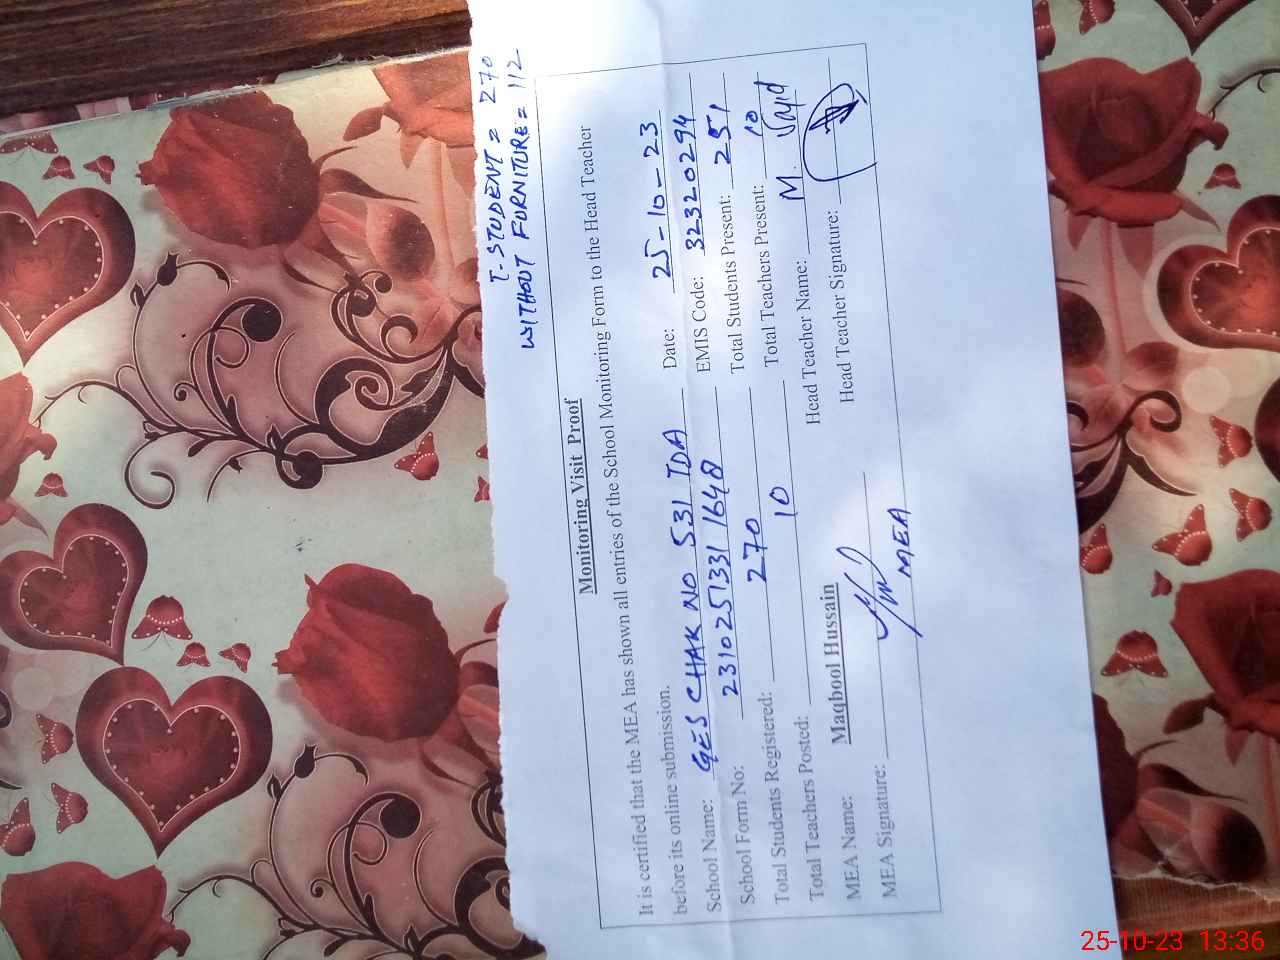 T. STUDENT = 270
WITHOUT FURNITURE = 112
Monitoring Visit Proof
It is certified that the MEA has shown all entries of the School Monitoring Form to the Head Teacher
before its online submission.
School Name: GES CHAK NO 531 TDA Date: 25-10-23
School Form No: 2310251331 1648 EMIS Code: 32320294
Total Students Registered: 270 Total Students Present: 251
Total Teachers Posted: 10 Total Teachers Present: 10
MEA Name: Maqbool Hussain Head Teacher Name: M. Sajid
MEA Signature: Head Teacher Signature:
MEA
25-10-23 13:36